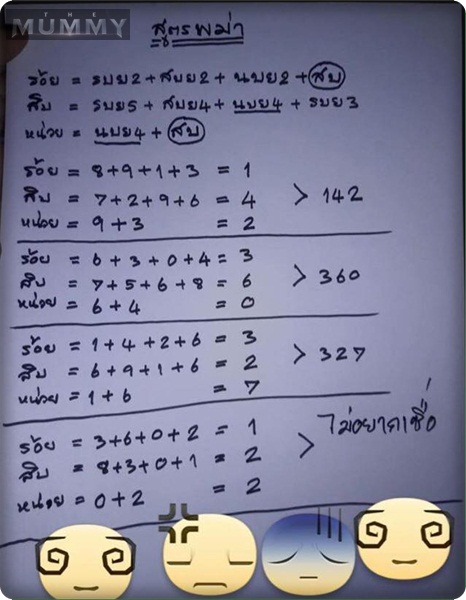 THE
MUMMY
สูตรพม่า
ร้อย = รบย2 + สบย2 + นบย2 + สบ
สิบ = รบย5 + สบย4 + นบย4 + รบย3
หน่วย = นบย4 + สบ
ร้อย = 8+9+1+3 = 1
สิบ = 7+2+9+6 = 4 > 142
หน่วย = 9+3 = 2
ร้อย = 6+3+0+4 = 3
สิบ = 7+5+6+8 = 6 > 360
หน่วย = 6+4 = 0
ร้อย = 1+4+2+6 = 3
สิบ = 6+9+1+6 = 2 > 327
หน่วย = 1+6 = 7
ร้อย = 3+6+0+2 = 1
สิบ = 8+3+0+1 = 2 > ไม่อยากเชื่อ
หน่วย = 0+2 = 2